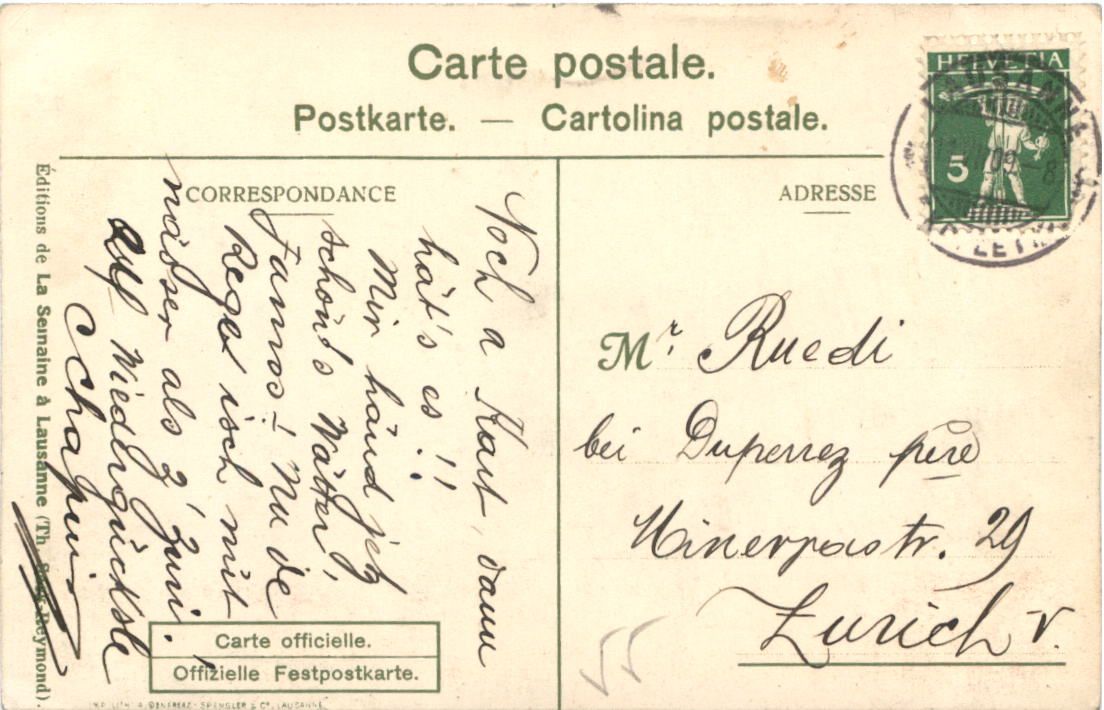 Carte postale.
Postkarte. — Cartolina postale.
CORRESPONDANCE
ADRESSE
HELVETIA
5
LAUSANNE
Noch a Kart, dann
hät's es!!
Mir händ jetz
schön's Wätter,
Famos! Nu de
Rege isch nüt
näs̈ser als z' Züri.
Auf Wiedrogücksle
Chapui
Mr. Ruedi
bei Duperrez père
Minervastr. 29
Zürich V.
Carte officielle.
Offizielle Festpostkarte.
Éditions de La Semaine à Lausanne (Th. Reymond).
LITH. A. DENEREAZ-SPENGLER & Cie, LAUSANNE